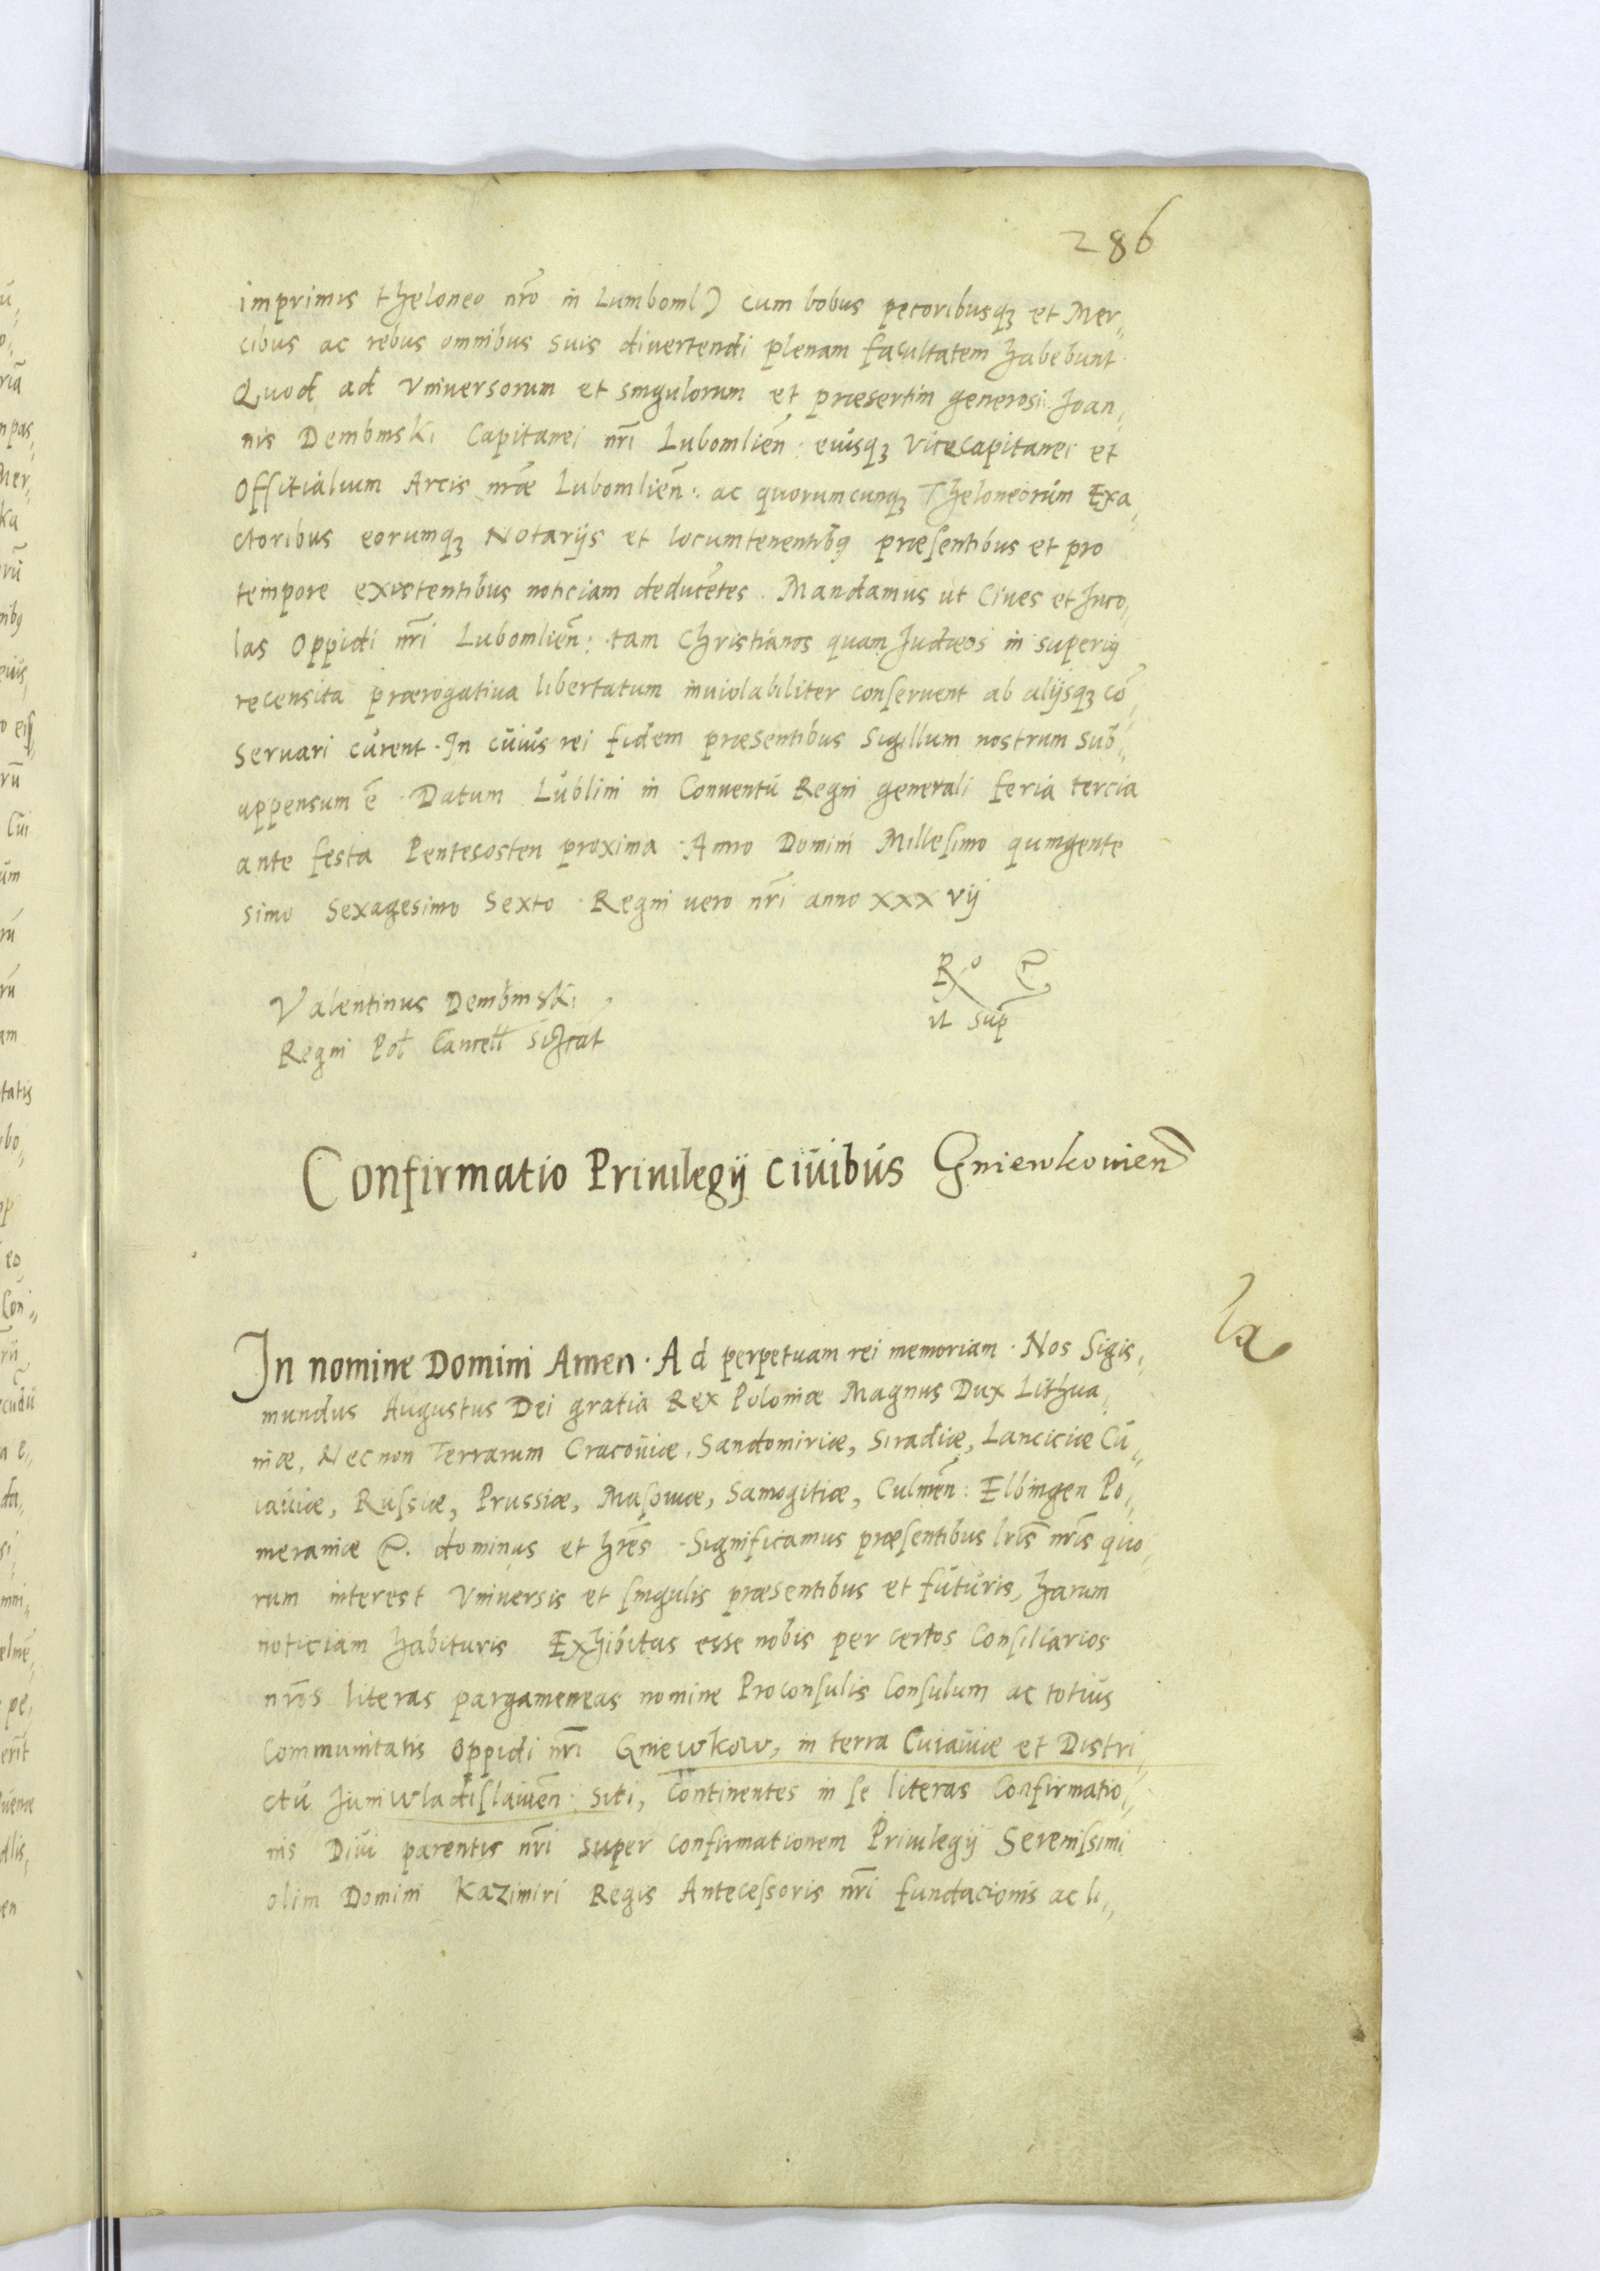 286
imprimis theloneo nr̃o in Lumboml) cum bobus pecoribusq3 et Mer„
cibus ac rebus omnibus suis divertendi plenam facultatem habebunt.
Quod ad vniversorum et singulorum et præsertim generosi Joan„
nis Dembinski Capitanei nr̃i Lubomlieñ: eiusq3 vicecapitanei et
Offitialium Arcis nr̃æ Lubomlieñ: ac quorumcunq3 Theloneorum Exa„
ctoribus eorumq3 Notarijs et locumtenentibg præsentibus et pro
tempore existentibus noticiam deducẽtes. Mandamus ut Ciues et Inco„
las Oppidi nr̃i Lubomlieñ: tam Christianos quam Judæos in superig
recensita prærogatiua libertatum inuiolabiliter conseruent ab alijsq3 cõ„
seruari curent. In cuius rei fidem præsentibus sigillum nostrum sub„
appensum ẽ. Datum Lublini in Conuentu Regni generali feria tercia
ante festa Pentecosten proxima. Anno Domini Millesimo quingente
simo Sexagesimo Sexto. Regni uero nr̃i anno xxxvij
Valentinus Dembinski
Regni Pol Cancell
ut sup
Confirmatio Priuilegij ciuibus Gniewkouien
In nomine Domini Amen. Ad perpetuam rei memoriam. Nos Sigis„
mundus Augustus Dei gratia Rex Poloniæ Magnus Dux Lithua„
niæ, Nec non Terrarum Cracouiæ, Sandomiriæ, Siradiæ, Lanciciæ Cu„
iauiæ, Russiæ, Prussiæ, Masouiæ, Samogitiæ, Culmeñ: Elbingen Po„
meraniæ &. dominus et hr̃es. Significamus præsentibus lr̃is nr̃is quo„
rum interest vniuersis et singulis præsentibus et futuris, harum
noticiam habituris Exhibitas esse nobis per certos Consiliarios
nr̃os literas pargameneas nomine Proconsulis Consulum ac totius
Communitatis Oppidi nr̃i Gniewkow, in terra Cuiauiæ et Distri„
ctu Juniwladislauieñ: siti, Continentes in se literas Confirmatio„
nis Diui parentis nr̃i super confirmationem Priuilegij Serenissimi
olim Domini Kazimiri Regis Antecessoris nr̃i fundacionis ac li„